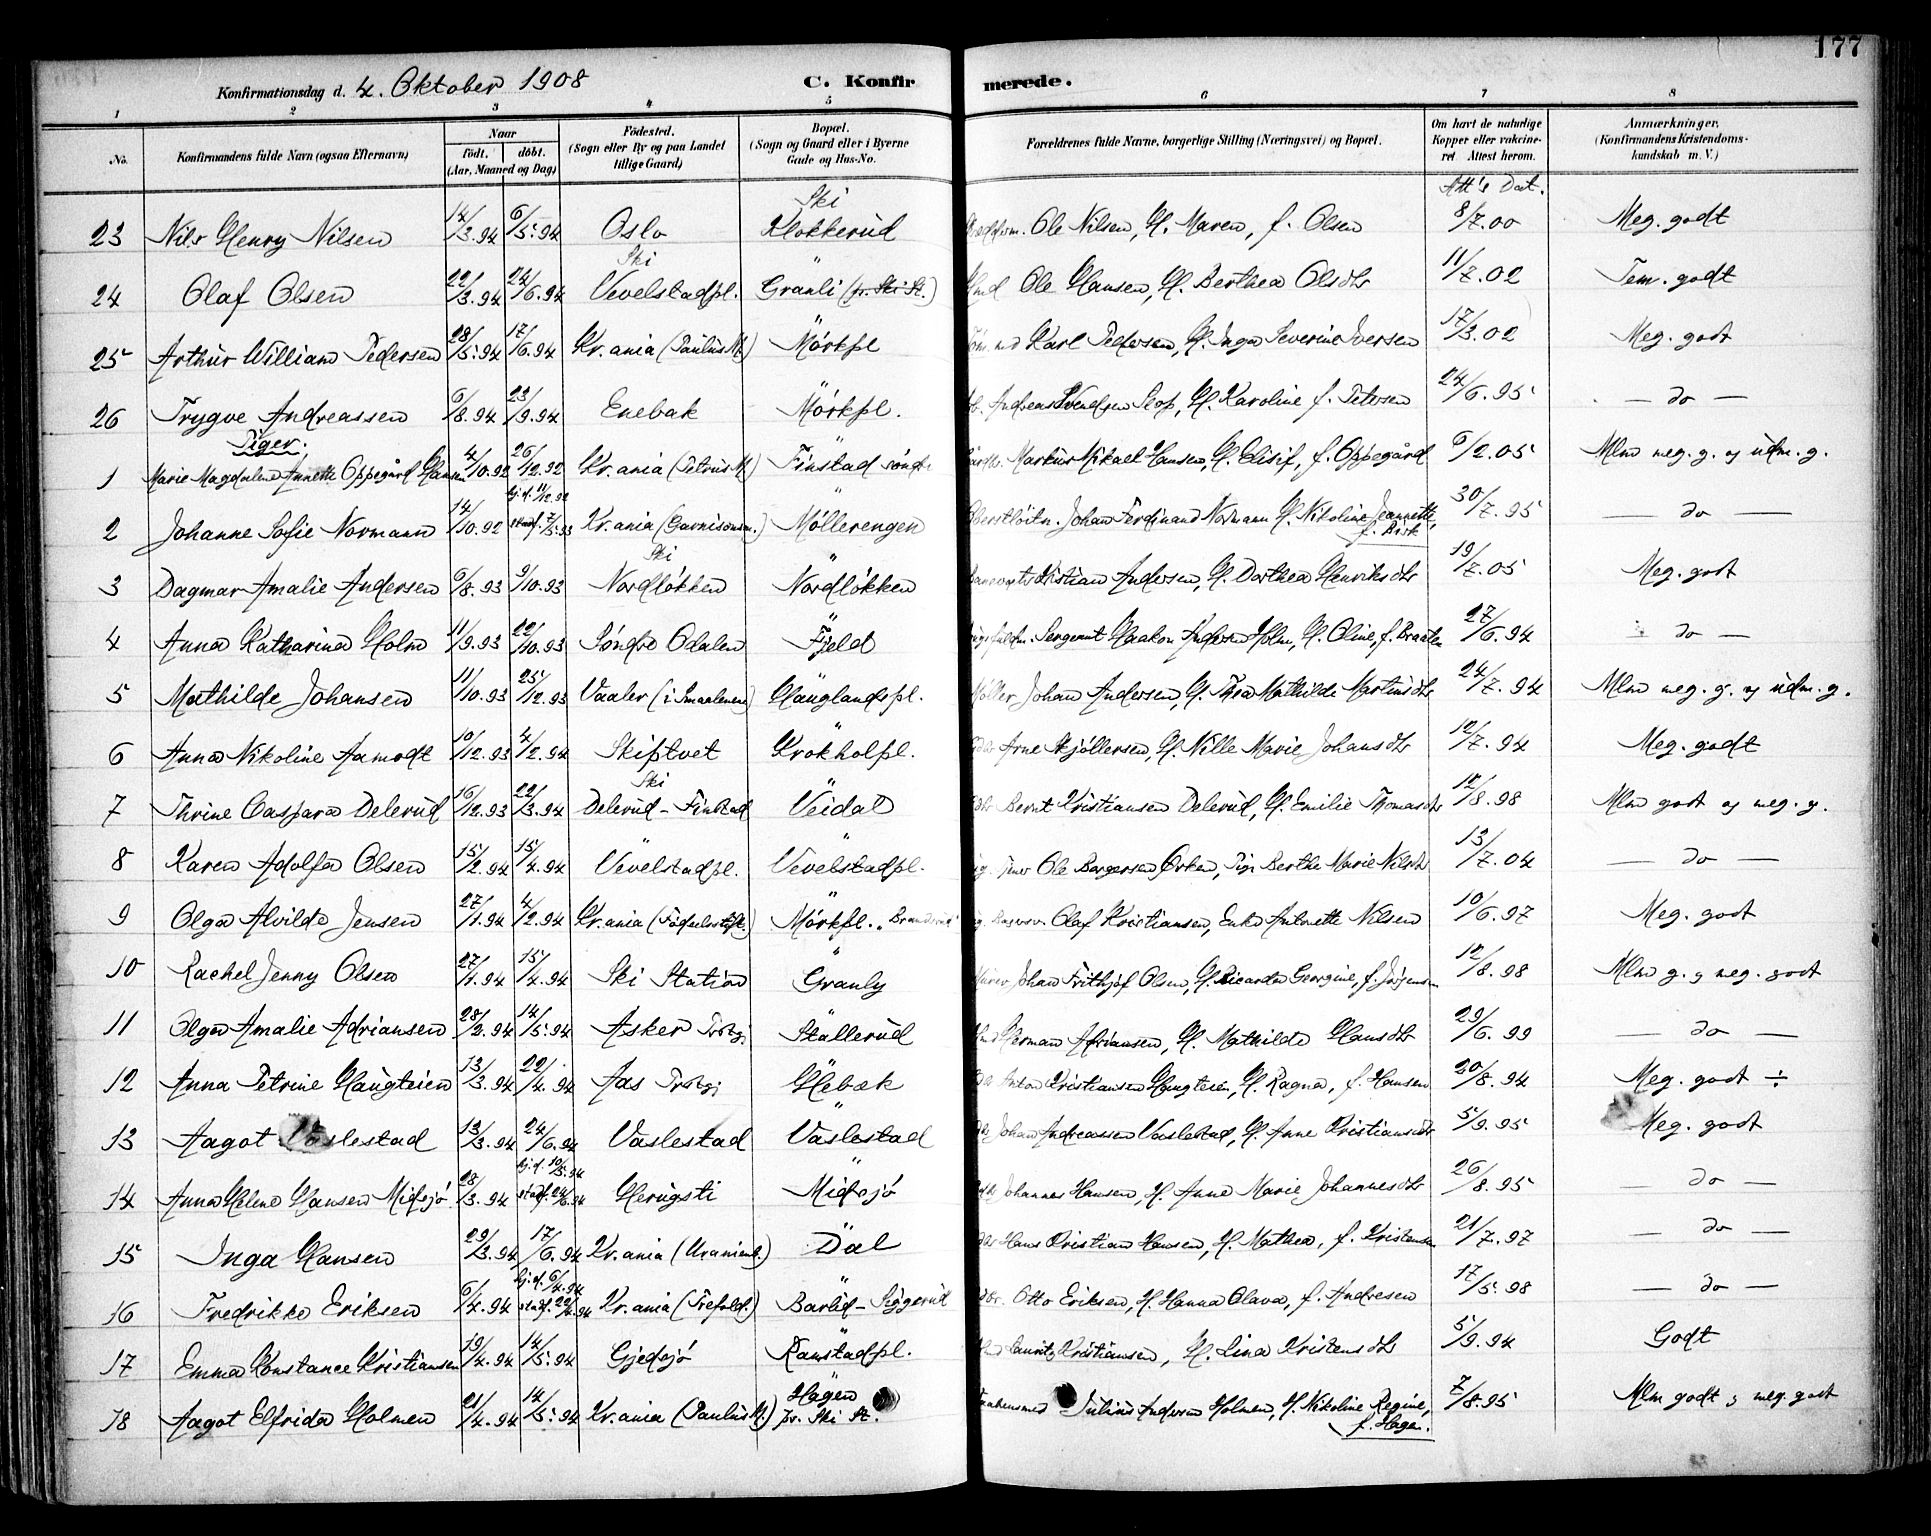 177
Konfirmationsdag d. 4. Oktober 1908 C. Konfirmerede.
1 2 3 4 5 6 7 8
No. Konfirmandens fulde Navn (ogsaa Efternavn) Naar født. døbt. (Aar, Maaned og Dag) Fødested. (Sogn eller By og paa Landet tillige Gaard) Bopæl. (Sogn og Gaard eller i Byerne Gade og Hus-No. Forældrenes fulde Navne, borgerlige Stilling (Næringsvei) og Bopæl. Om havt de naturlige Kopper eller vakcineret Attest herom. Anmærkninger. (Konfirmandens Kristendomskundskab m. V.)
Ski Att's Dat.
23 Nils Henry Nilsen 14/3.94 6/5.94 Oslo Klokkerud Ole Nilsen, H. Maren, f. Olsen 8/7.00 Meg. godt
24 Olaf Olsen 22/3.94 24/6.94 Ski Vevelstadpl. " Granli (pr. Ski St.) Ole Hansen, H. Berthea Olsdtr 11/7.02 Tem. godt
25 Arthur William Pedersen 28/5.94 17/6.94 Kr.ania (Paulus M) " Mørkpl Karl Pedersen, H. Inga Severine Iversen 17/3.02 Meg. godt
26 Trygve Andreassen 6/8.94 23/9.94 Enebak " Mørkpl. Andreas Svendsen Slop, H. Karoline f. Petersen 24/6.95 — do —
Piger:
1 Marie Magdalene Annette Oppegård Hansen 4/10.92 26/12.92 Kr.ania (Petrus M) " Finstad søndr. Markus Mikael Hansen, H. Elisif, f. Oppegård 6/2.05 Mlm meg. g. og udm. g.
2 Johanne Sofie Normann 14/10.92 hj.d. 11/12.92 stadf. 7/5.93 Kr.ania (Garnisonsm.) " Møllerengen Oberstløitn. Johan Ferdinand Normann H. Nikoline Jeannette, f. Bisk 30/7.95 — do —
3 Dagmar Amalie Andersen 6/8.93 9/10.93 Ski Nordløkken " Nordløkken Kristian Andersen, H. Dorthea Henriksdtr 19/7.05 Meg. godt
4 Anna Katharina Holm 11/9.93 22/10.93 Søndre Odalen " Fjeld Sergeant Haakon Andersen Holm, H. Oline, f. Braaten 27/6.94 " do —
5 Mathilde Johansen 11/10.93 25/12.93 Vaaler (i Smaalenene) Hauglandspl. Møller Johan Andersen, H. Thea Mathilde Martinsdtr 24/7.94 Mlm meg. g. og udm. g.
6 Anna Nikoline Aamodt 10/12.93 4/2.94 Skiptvet " Krokholpl. Arne Skjøllersen, H. Nille Marie Johansdtr 12/7.94 Meg. godt
7 Thrine Caspara Delerud 16/12.93 22/3.94 Ski Delerud - Finstad " Veidal Bernt Kristiansen Delerud, H. Emilie Thomasdtr 12/8.98 Mlm godt og meg. g.
8 Karen Adolfa Olsen 15/2.94 15/4.94 " Vevelstadpl. " Vevelstadpl. Ole Borgersen Ørken, Pige Berthe Marie Nilsdtr 13/7.04 — do —
9 Olga Alvilde Jensen 27/1.94 4/2.94 Kr.ania (Fødselsstift.) " Mørkpl. Olaf Kristiansen, Enke Antonette Nilsen 10/6.97 Meg. godt
10 Rachel Jenny Olsen 27/1.94 15/4.94 Ski Station " Granly Murer Johan Frithjof Olsen, H. Ricarda Georgine, f. Jørgensen 12/8.98 Mlm g. og meg. godt
11 Olga Amalie Adriansen 28/2.94 14/5.94 Asker Prstgj " Skallerud Herman Adriansen, H. Mathilde Hansdtr 29/6.99 — do —
12 Anna Petrine Haugteien 13/3.94 22/4.94 Aas Prstgj " Hebæk Anton Kristiansen Haugteien, H. Ragna, f. Hansen 20/8.94 Meg. godt ÷
13 Aagot Vaslestad 13/3.94 24/6.94 Vaslestad " Vaslestad Johan Andreassen Vaslestad, H. Anne Kristiansdtr 5/9.95 Meg. godt
14 Anna Helene Hansen Midsjø 28/3.94 hj.d. 10/5.94 stadf. 24/6.94 Herugsti " Midsjø Johannes Hansen, H. Anne Marie Johannesdtr 26/8.95 — do —
15 Inga Hansen 29/3.94 17/6.94 Kr.ania (Uranienb.) " Dal Hans Kristian Hansen, H. Mathea, f. Kristensen 21/7.97 — do —
16 Fredrikke Eriksen 6/4.94 hj.d. 6/4.94 stadf. 22/4.94 Kr.ania (Trefold.) " Barlid - Siggerud Otto Eriksen, H. Hanna Olava, f. Andresen 17/5.98 — do —
17 Emma Konstance Kristiansen 19/4.94 14/5.94 Gjedsjø " Ranstadpl. Lauritz Kristiansen, H. Lina Kristensdtr 5/9.94 Godt
18 Aagot Elfrida Holmen 21/4.94 14/5.94 Kr.ania (Paulus M.) Hagen pr. Ski St. Julius Andersen Holmen, H. Nikoline Regine, f. Hagen. 7/8.95 Mlm godt og meg. godt